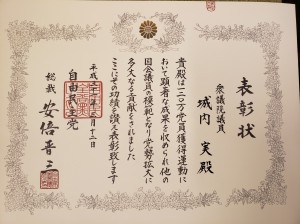 表彰状
衆議院議員
城内 実殿
貴殿は一二〇万党員獲得運動に
おいて顕著な成果を収められ他の
国会議員の模範となり党勢拡大に
多大なる貢献をされました
ここにその功績を讃え表彰致します
平成二十 年 月十二日
自由民主党
総裁 安倍晋三